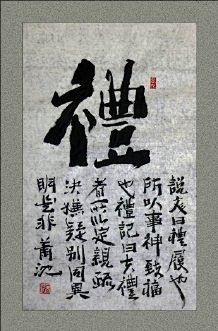 禮
說文曰禮履也
所以事神致福
也禮記曰夫禮
者所以定親疏
決嫌疑別同異
明是非 蕭沈